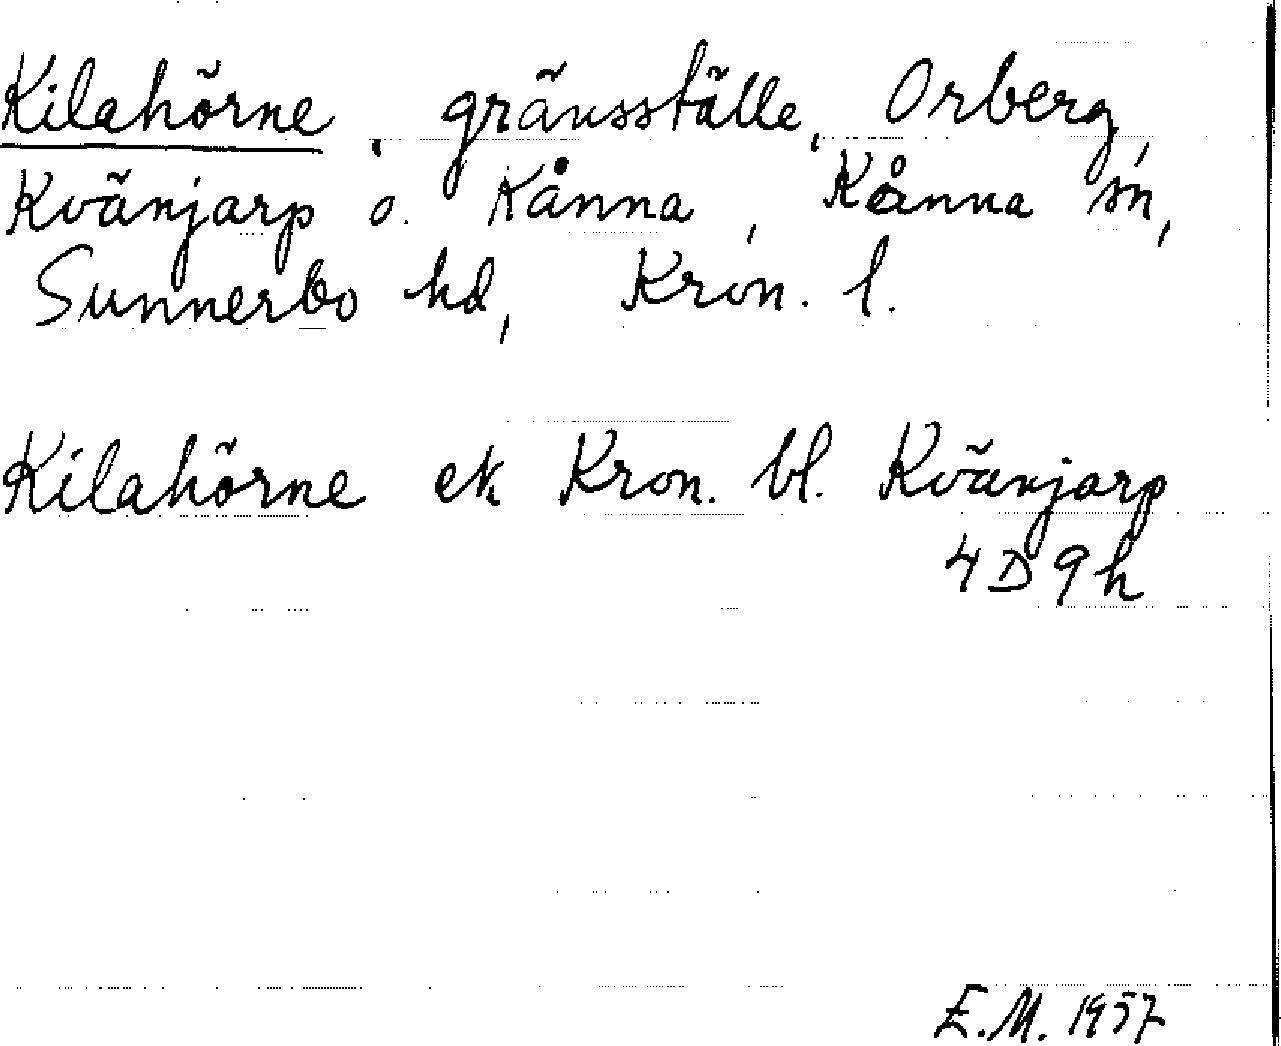 Kilahörne, gränsställe, Orberg,
Kvänjarp o. Kånna, Kånna sn,
Sunnerbo hd, Kron. l.
Kilahörne ek Kron. bl. Kvänjarp
4D9h
E.M. 1957